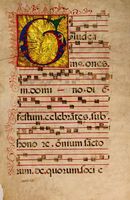 Gaudea
mus omnes
in domino di
festum celebrātes sub
honore omnium sācto
rum de quorum sole